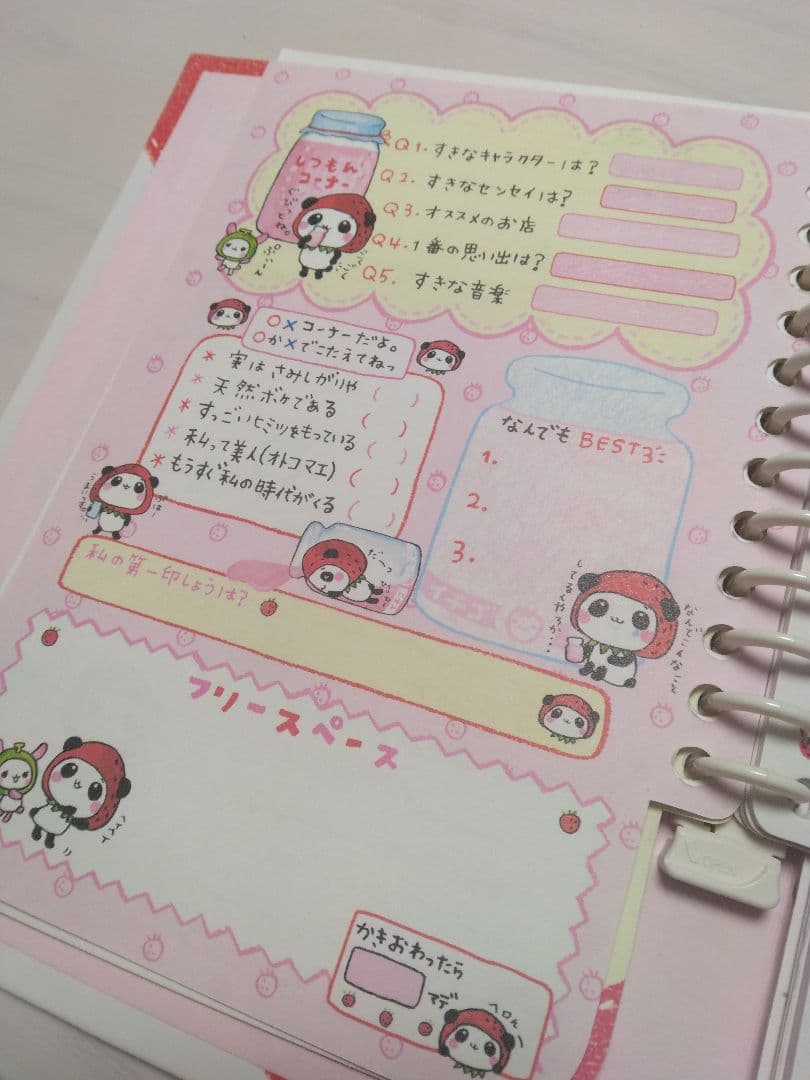 しつもん
コーナー
Q1.すきなキャラクターは?
Q2.すきなセンセイは?
Q3.オススメのお店
Q4.1番の思い出は?
Q5.すきな音楽
ぐびっとね。
ごくごく
ぷぃーん
○×コーナーだよ。
○か×でこたえてねっ
*実はさみしがりや( )
*天然ボケである( )
*すっごいヒミツをもっている( )
*私って美人(オトコマエ)( )
*もうすぐ私の時代がくる( )
なんでもBEST3
1.
2.
3.
イチゴ
なんでこんなこと
してるんやろか…
だーっ
私の第一印しょうは?
フリースペース
かきおわったら
マデ
OPEN